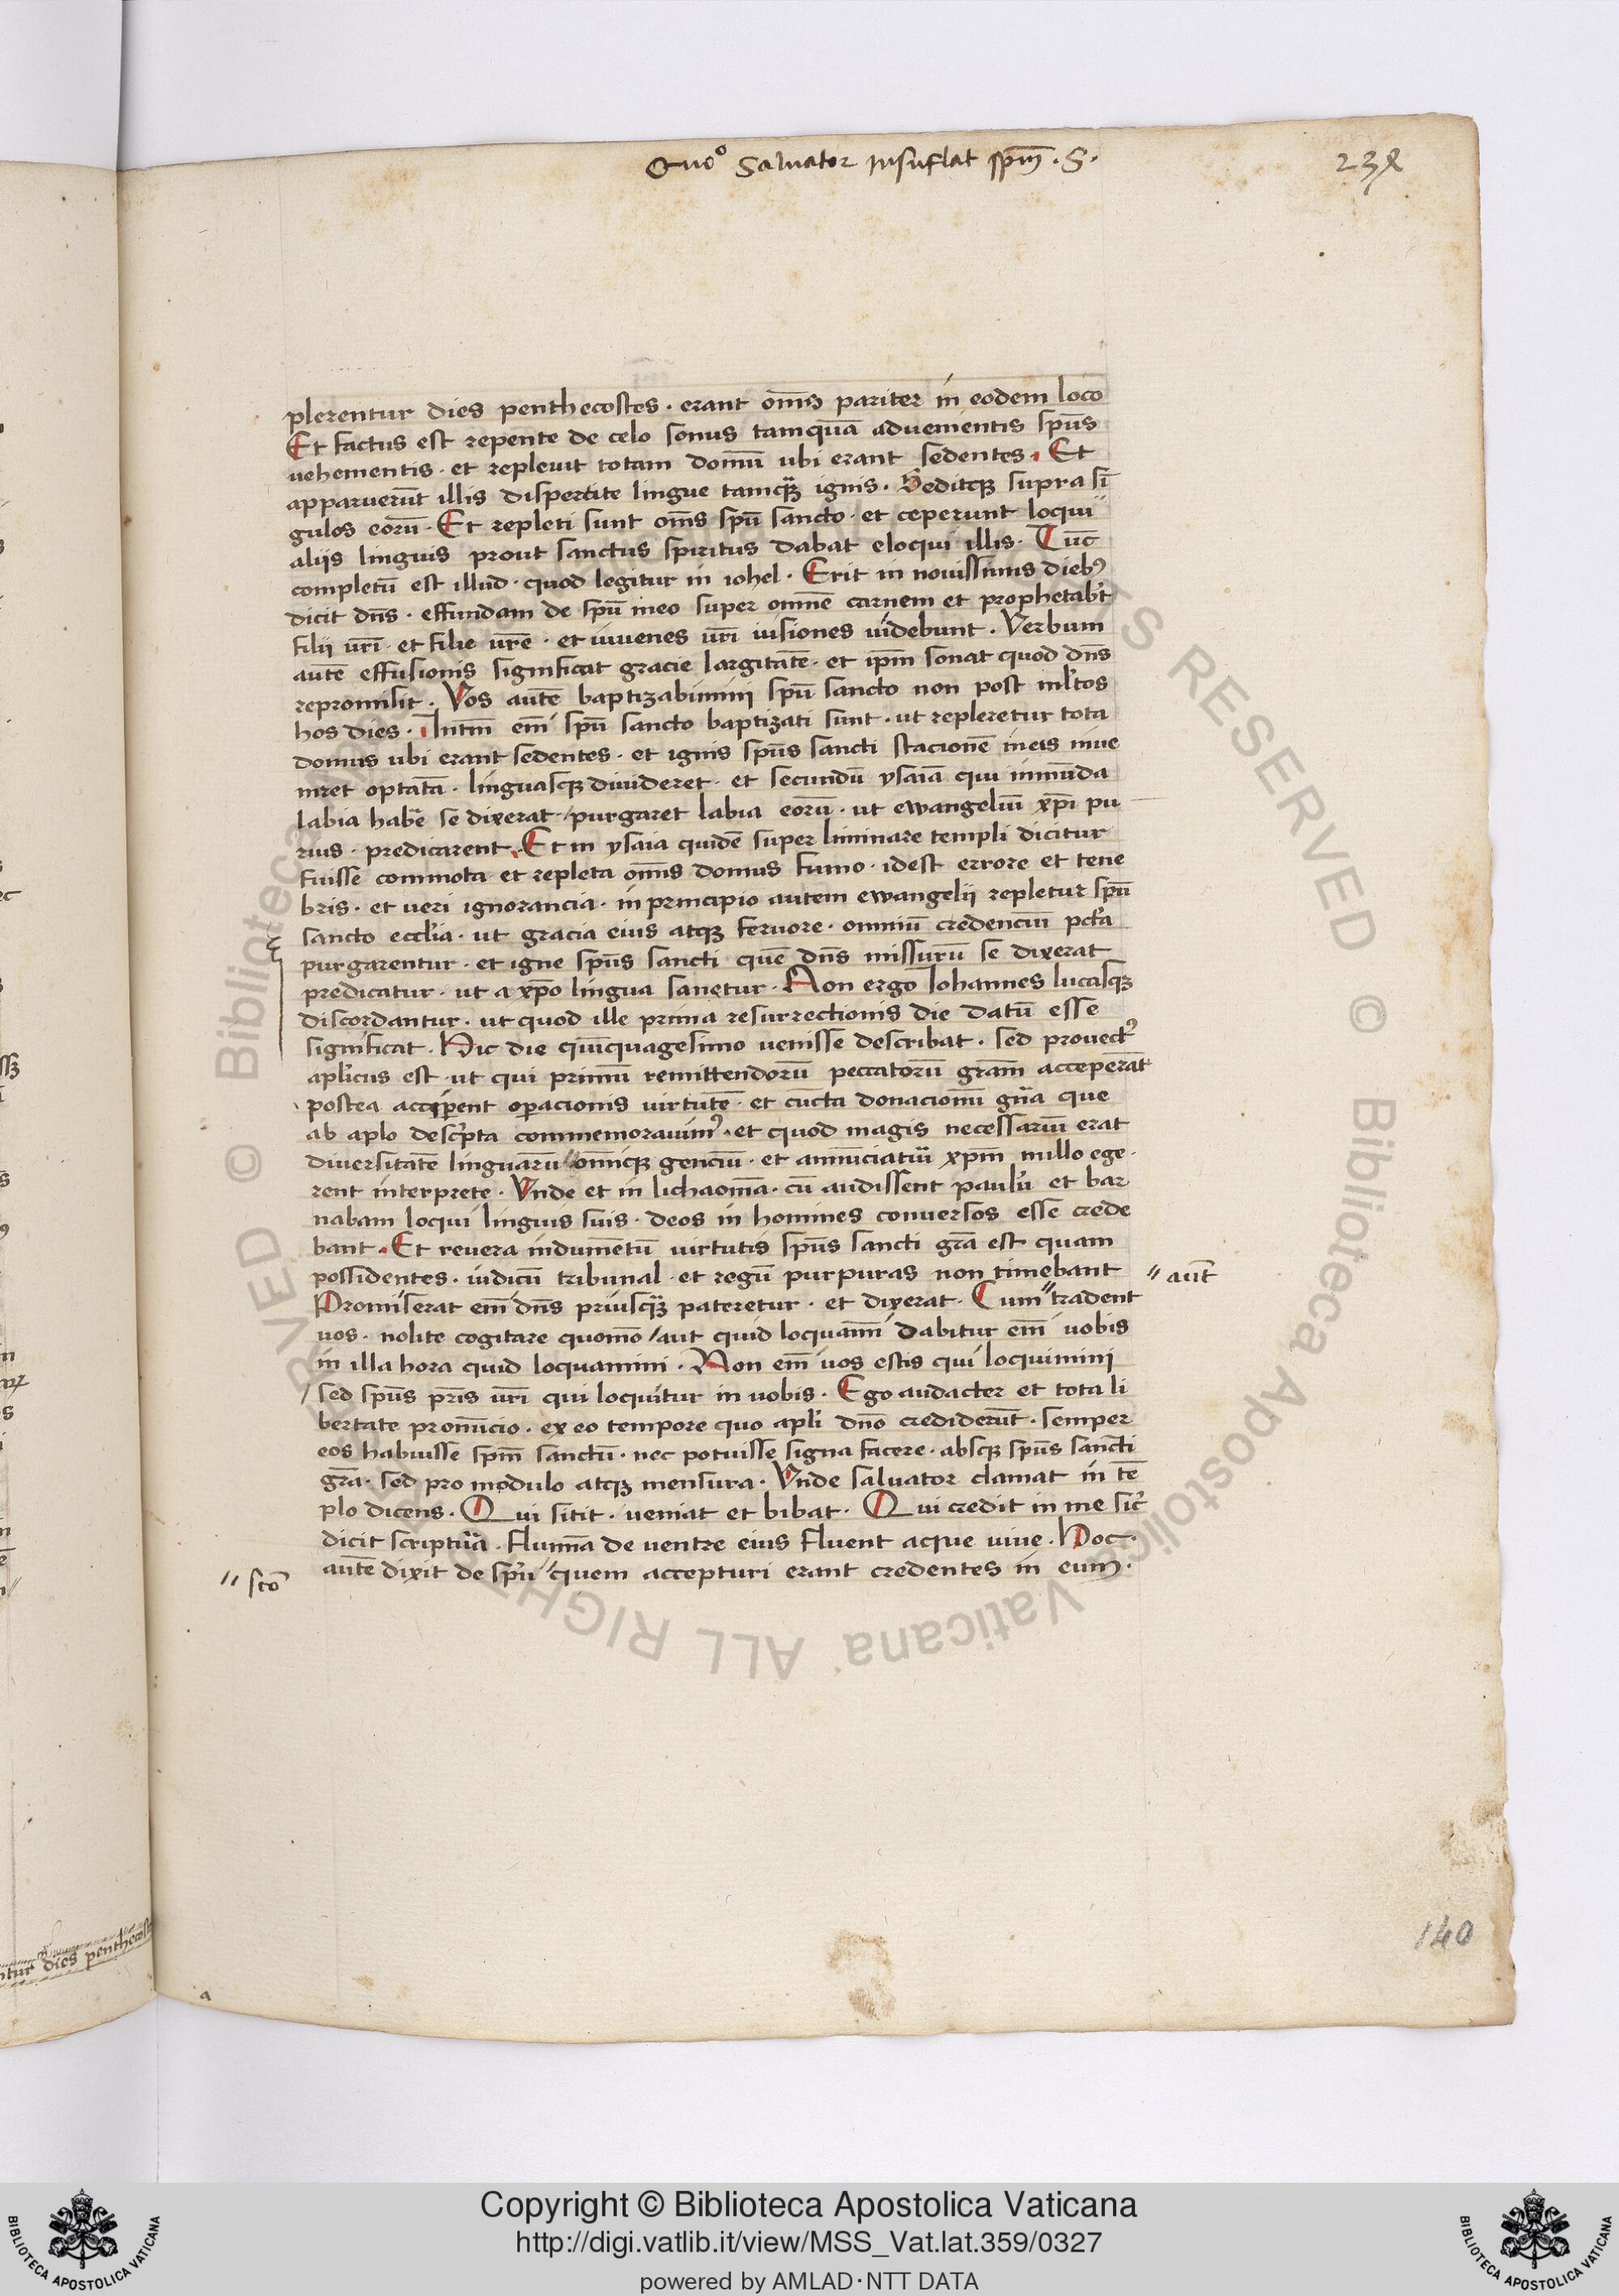 Quo° Saluator insuflat sp̄m . S .
238
plerentur dies penthecostes . erant om̄s pariter in eodem loco
Et factus est repente de celo sonus tamquā aduenientis sp̄us
uehementis . et repleuit totam domū ubi erant sedentes . Et
apparuerūt illis dispertite lingue tamq̄ꝫ ignis . Seditqꝫ supra sī
gulos eorū . Et repleti sunt om̄s sp̄u sancto . et ceperunt loqui
aliis linguis prout sanctus spiritus dabat eloqui illis . Tūc
completū est illud . quod legitur in iohel . Erit in nouissimis diebꝰ
dicit dn̄s . effundam de sp̄u meo super omnē carnem et prophetabūt
filii ur̄i . et filie ur̄e . et iuuenes ur̄i uisiones uidebunt . Verbum
autē effusionis significat gracie largitatē . et ip̄m sonat quod dn̄s
repromisit . Vos autē baptizabimini sp̄u sancto non post ml̄tos
hos dies . Intm̄ em̄ sp̄u sancto baptizati sunt . ut repleretur tota
domus ubi erant sedentes . et ignis sp̄us sancti stacionē in eis inue
niret optatā . linguasqꝫ diuideret . et secundū ysaiā qui inmūda
labia habē se dixerat / purgaret labia eorū . ut ewangeliū xp̄i pu
rius . predicarent . Et in ysaia quidē super liminare templi dicitur
fuisse commota et repleta om̄s domus fumo . idest errore et tene
bris . et ueri ignorancia . in principio autem ewangelii repletur sp̄u
sancto eccl̄ia . ut gracia eius atqꝫ feruore . omniū credenciū pct̄a
purgarentur . et igne sp̄us sancti quē dn̄s missurū se dixerat
predicatur . ut a xp̄o lingua sanetur . Non ergo Iohannes lucasqꝫ
discordantur . ut quod ille prima resurrectionis die datū esse
significat . Hic die quīquagesimo uenisse describat . sed prouectꝰ
apl̄icus est . ut qui primū remittendorū peccatorū grām acceperāt
postea acciperent operacionis uirtutē . et cūcta donacionū gn̄a que
ab aplo descripta commemorauimꝰ . et quod magis necessariū erat
diuersitatē linguarū // omniūqꝫ genciū . et annūciaturi xp̄m nullo ege .
rent interprete . Vnde et in lichaonia . cū audissent paulū et bar
nabam loqui linguis suis . deos in homines conuersos esse crede
bant . Et reuera indumētū uirtutis sp̄us sancti grā est quam
possidentes . iudicū tribunal . et regū purpuras non timebant
// aut̄
Promiserat em̄ dn̄s priusqꝫ pateretur . et dixerat . Cum // tradent
uos . nolite cogitare quomō / aut quid loquam̄i dabitur em̄ uobis
in illa hora quid loquamini . Non em̄ uos estis qui loquimini
/ sed sp̄us pr̄is ur̄i qui loquitur in uobis . Ego audacter et tota li
bertate pronūcio . ex eo tempore quo apl̄i dn̄o crediderūt . semper
eos habuisse sp̄m sanctū . nec potuisse signa facere . absqꝫ sp̄us sancti
grā . sed pro modulo atqꝫ mensura . Vnde saluator clamat in tē
plo dicens . Qui sitit . ueniat et bibat . Qui credit in me sic̄
dicit scriptura . flumīa de uentre eius fluent aque uiue . Hoc .
autē dixit de sp̄u // quem accepturi erant credentes in eum .
// sc̄o
140
Copyright © Biblioteca Apostolica Vaticana
http://digi.vatlib.it/view/MSS_Vat.lat.359/0327
powered by AMLAD·NTT DATA
BIBLIOTECA APOSTOLICA VATICANA
BIBLIOTECA APOSTOLICA VATICANA